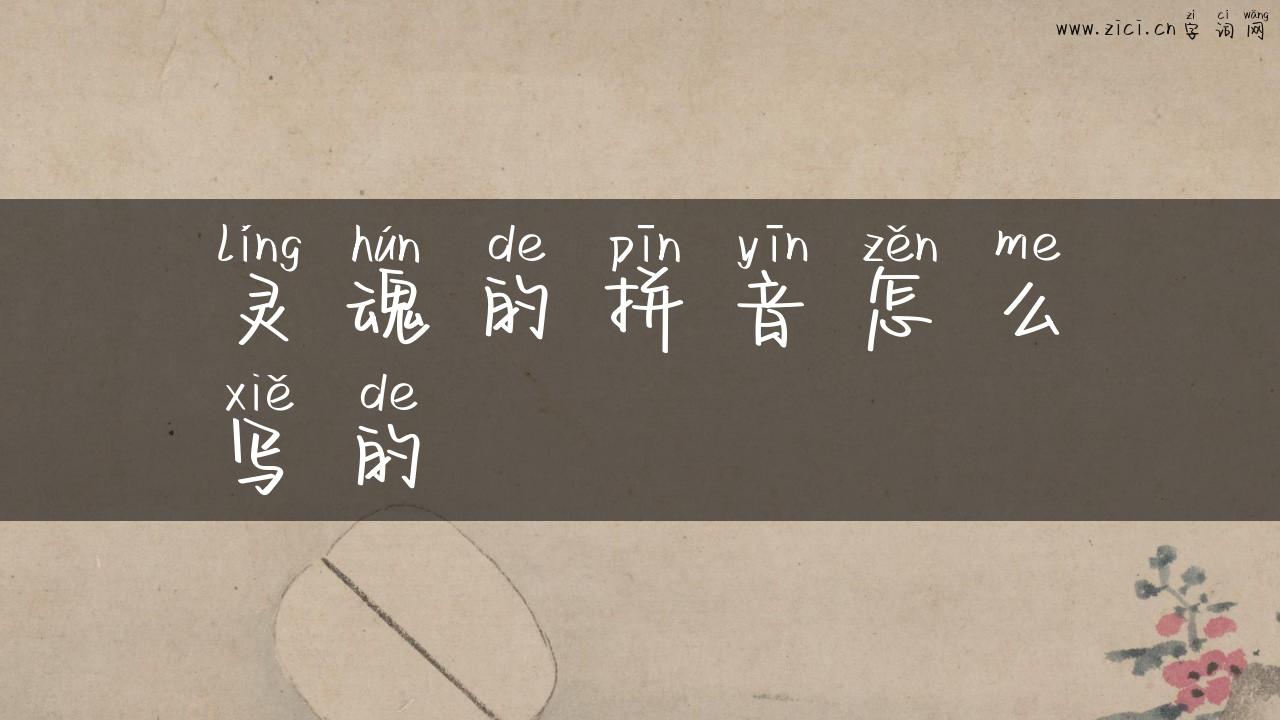 zì cí wǎng
www.zici.cn字词网
líng hún de pīn yīn zěn me
灵魂的拼音怎么
xiě de
写的